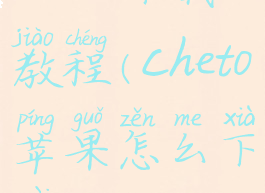 jiào chéng
教程(cheto
píng guǒ zěn me xià
苹果怎么下